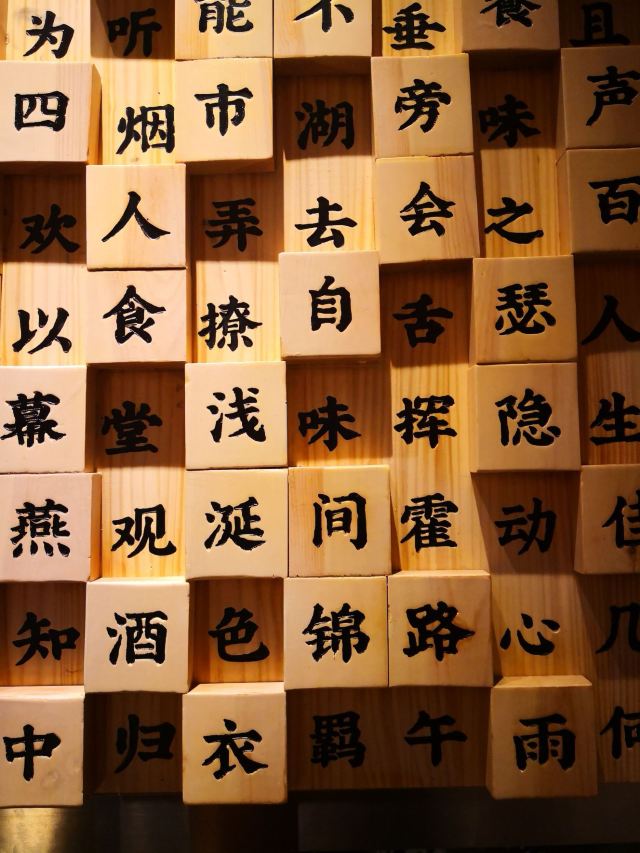 为听能不垂且
四烟市湖旁味声
欢人弄去会之百
以食撩自舌瑟人
幕堂浅味挥隐生
燕观涎间霍动佳
知酒色锦路心几
中归衣羁午雨何